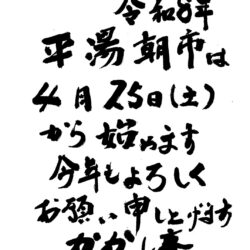 令和8年
平湯朝市は
4月25日(土)
から始めます
今年もよろしく
お願い申し上げます